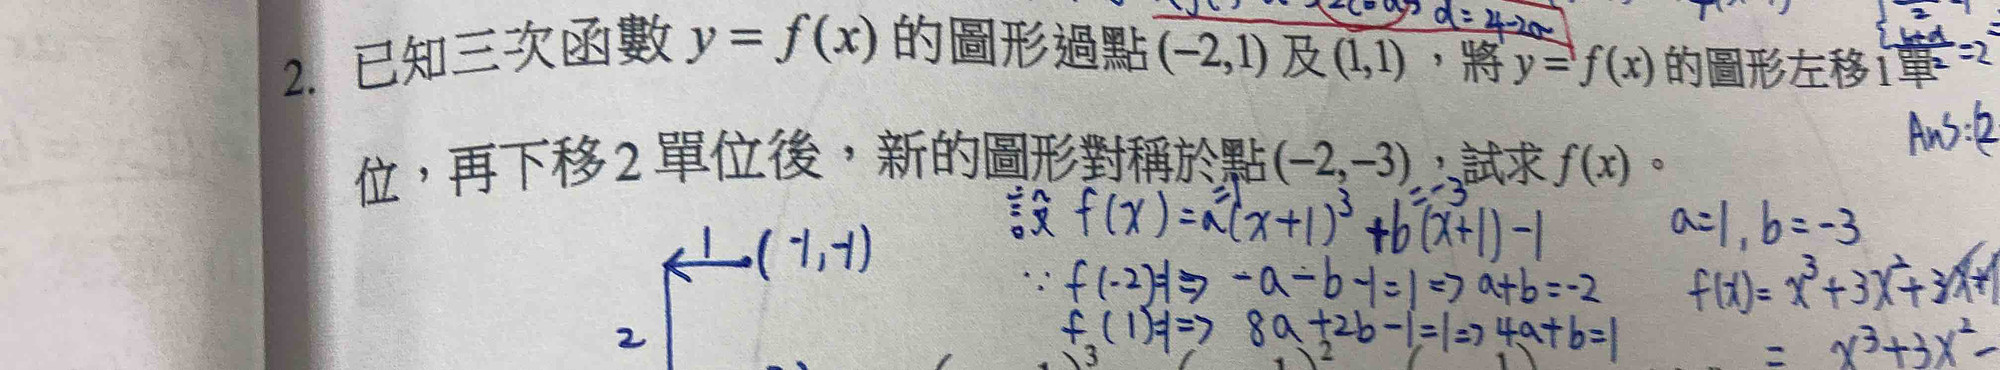 d=4-2a
2. 已知三次函數 y = f(x) 的圖形過點 (−2,1) 及 (1,1)，將 y = f(x) 的圖形左移 1 單
=2
Ans:(2
位，再下移 2 單位後，新的圖形對稱於點 (−2,−3)，試求 f(x)。
=1 =-3
設 f(x)=a(x+1)³+b(x+1)-1 a=1, b=-3
1 (-1,-1)
∵ f(-2)=1⇒ -a-b-1=1⇒a+b=-2 f(x)=x³+3x²+3x+1
2 f(1)=1⇒ 8a+2b-1=1⇒4a+b=1
= x³+3x²-